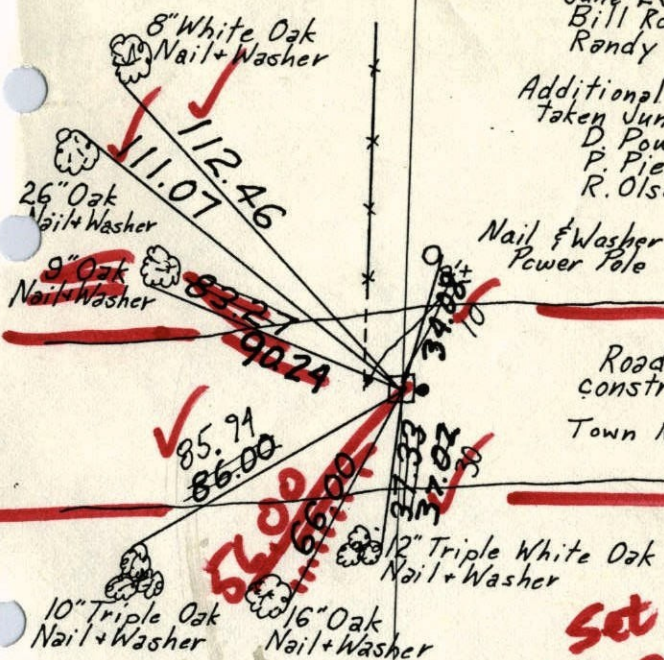 8" White Oak
Nail + Washer
Bill
Randy
Additional
taken
D.
P.
R.
112.46
111.07
26" Oak
Nail + Washer
9" Oak
Nail + Washer
83.27
90.24
Nail & Washer
Power Pole
34.08
10
Road
Town
85.94
86.00
56.00
66.00
37.33
37.02
30
12" Triple White Oak
Nail + Washer
10" Triple Oak
Nail + Washer
16" Oak
Nail + Washer
Set